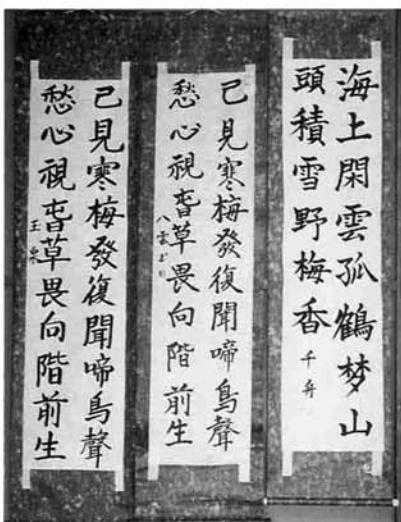 海上閑雲孤鶴梦山
頭積雪野梅香
已見寒梅發復聞啼鳥聲
愁心視旾草畏向階前生
八雲
已見寒梅發復聞啼鳥聲
愁心視旾草畏向階前生
玉泉